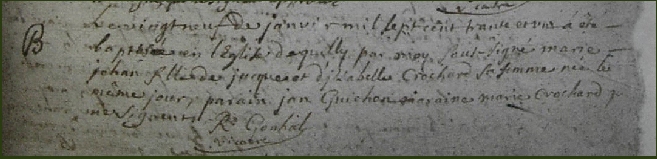 Vicaire
B Le vingt neuf de janvier mil sept cent trante et un a été
baptisée en l'Eglise de quilly par moy sous-signé marie
johan fille de jacques et d'izabelle Crochard sa femme née le
même jour, parain jan Guichon maraine marie Crochard
ne signents R. Gouhil
vicaire